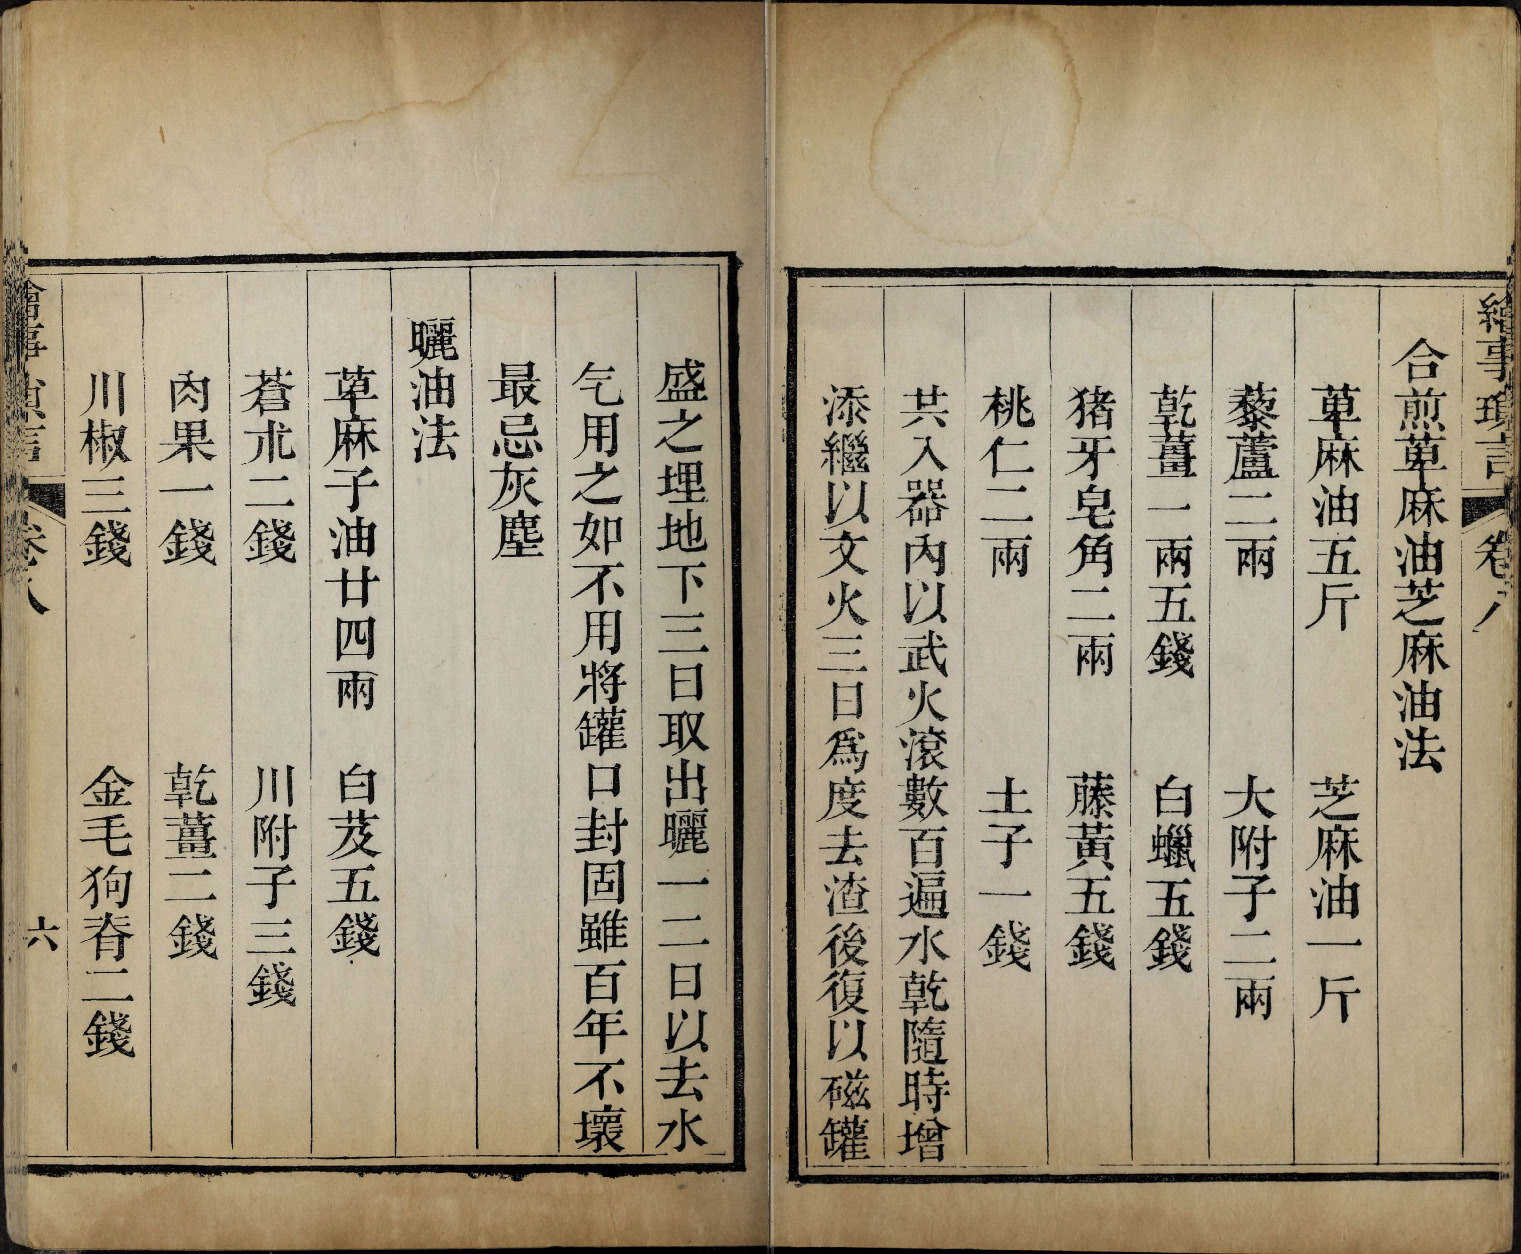 繪事瑣言 卷八
合煎萆麻油芝麻油法
萆麻油五斤 芝麻油一斤
藜蘆二兩 大附子二兩
乾薑一兩五錢 白蠟五錢
猪牙皂角二兩 藤黃五錢
桃仁二兩 土子一錢
共入器內以武火滾數百遍水乾隨時增
添繼以文火三日爲度去渣後復以磁罐
盛之埋地下三日取出曬一二日以去水
气用之如不用將罐口封固雖百年不壞
最忌灰塵
曬油法
萆麻子油廿四兩 白芨五錢
蒼朮二錢 川附子三錢
肉果一錢 乾薑二錢
川椒三錢 金毛狗脊二錢
繪事瑣言 卷八 六